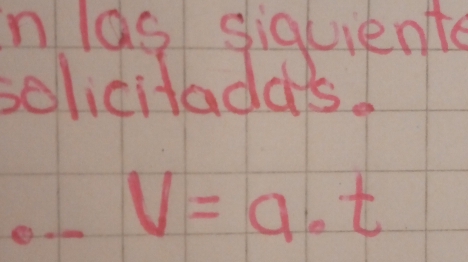 n las siguiente
solicitadas.
.- V = a . t